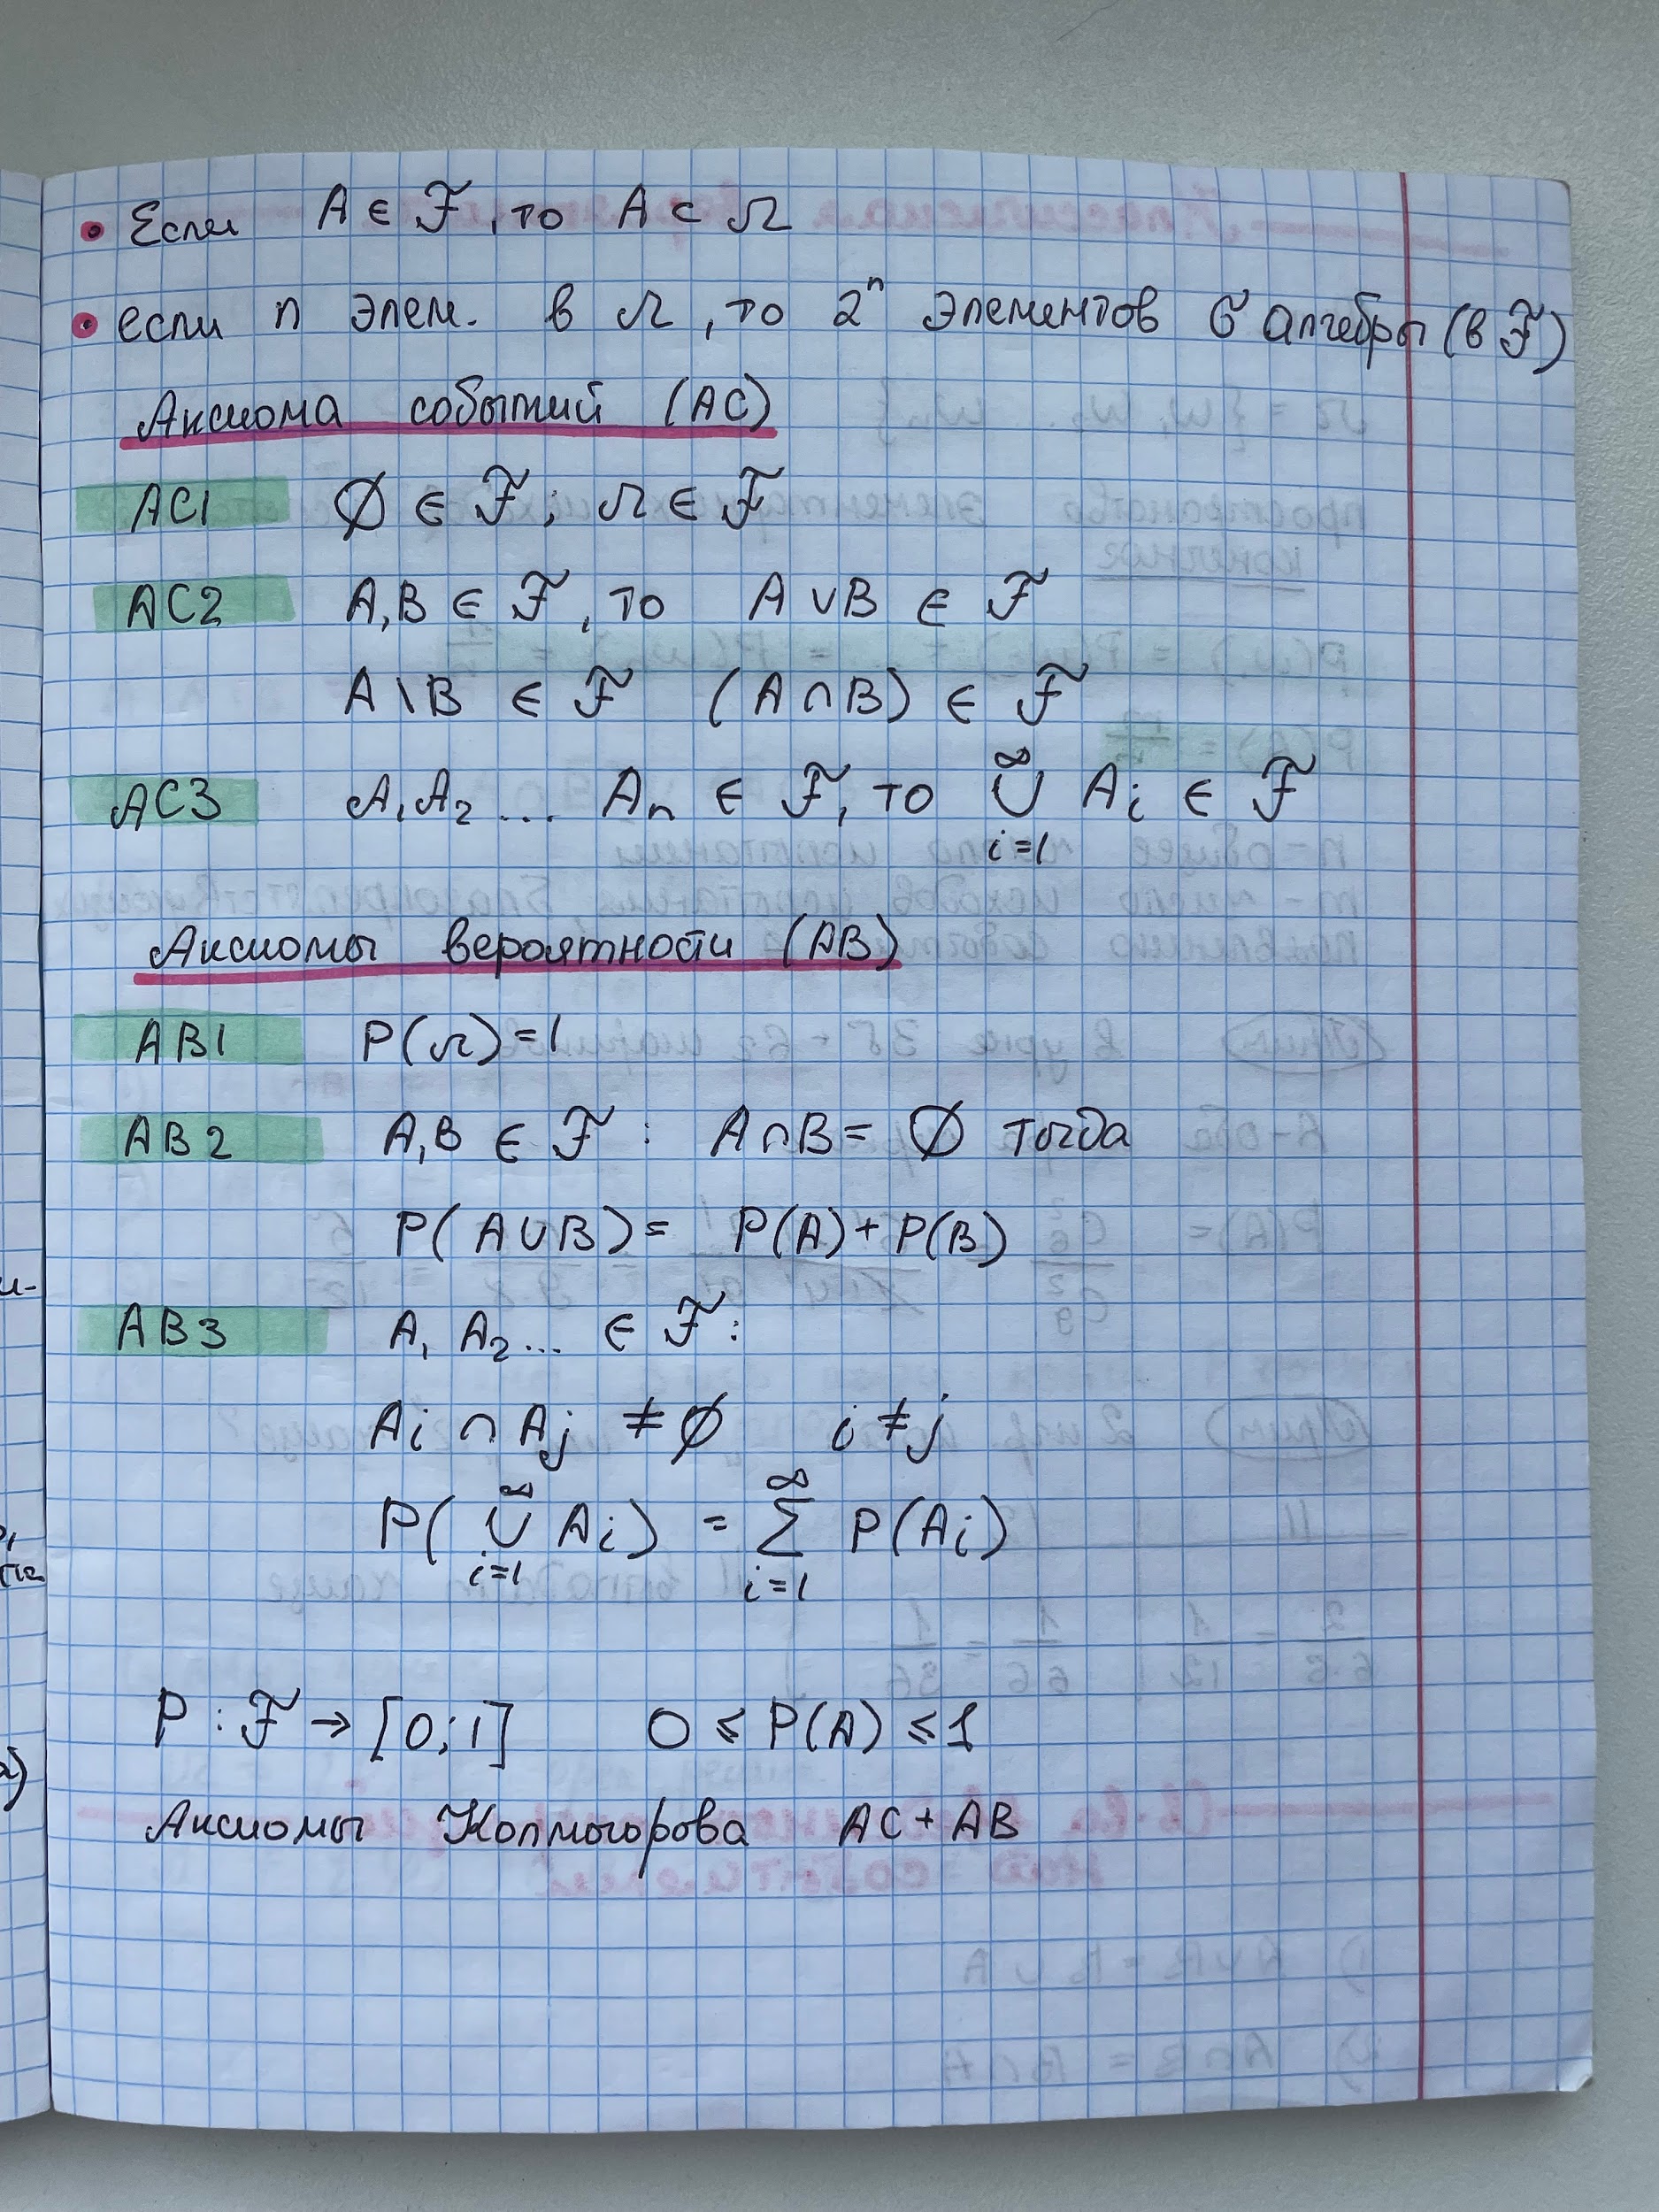 • Если A ∈ ℱ, то A ⊂ Ω
• если n элем. в Ω, то 2ⁿ элементов σ алгебры (в ℱ)
Аксиома событий (АС)
АС1 ∅ ∈ ℱ; Ω ∈ ℱ
АС2 A,B ∈ ℱ, то A ∪ B ∈ ℱ
A \ B ∈ ℱ (A ∩ B) ∈ ℱ
АС3 A₁ A₂ ... Aₙ ∈ ℱ, то ∞ ∪ i=1 Aᵢ ∈ ℱ
Аксиомы вероятности (АВ)
АВ1 P(Ω)=1
АВ2 A,B ∈ ℱ : A ∩ B = ∅ тогда
P(A ∪ B) = P(A) + P(B)
АВ3 A₁ A₂ ... ∈ ℱ :
Aᵢ ∩ Aⱼ ≠ ∅ i ≠ j
P( ∞ ∪ i=1 Aᵢ) = ∞ ∑ i=1 P(Aᵢ)
P : ℱ → [0;1] 0 ⩽ P(A) ⩽ 1
Аксиомы Колмогорова АС + АВ